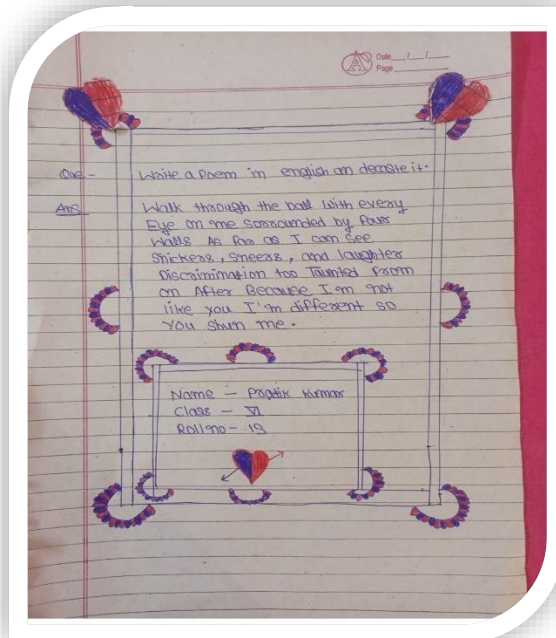 Date __/__/__
Page ______
Que - Write a Poem in english an decoste it.
Ans Walk through the ball with every
Eye on me sorrounded by four
Walls As far as I can see
Snickers, Sneers, and laughter
Discrimination too Taunted from
on After Because I'm not
like you I'm different so
You shun me.
Name - Pratik Kumar
Class - VI
Roll no - 19